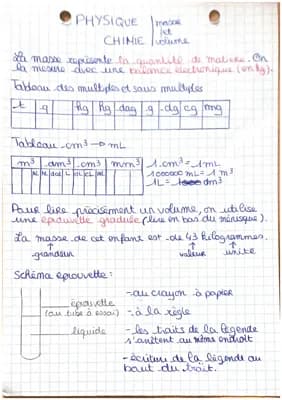 PHYSIQUE
CHIMIE
masse
et
volume
La masse représente la quantité de matière. On
la mesure avec une balance électronique (en kg).
Tableau des multiples et sous multiples
t q kg hg dag g dg cg mg
Tableau cm³ → mL
m³ dm³ cm³ mm³
1 cm³ = 1 mL
1000000 mL = 1 m³
1L = dm³
Pour lire précisément un volume, on utilise
une éprouvette graduée (lire en bas du ménisque).
La masse de cet enfant est de 43 kilogrammes.
grandeur valeur unité
Schéma éprouvette :
éprouvette
(ou tube à essai)
liquide
- au crayon à papier
- à la règle
- les traits de la légende
s'arrêtent au même endroit
- écriture de la légende au
bout du trait.